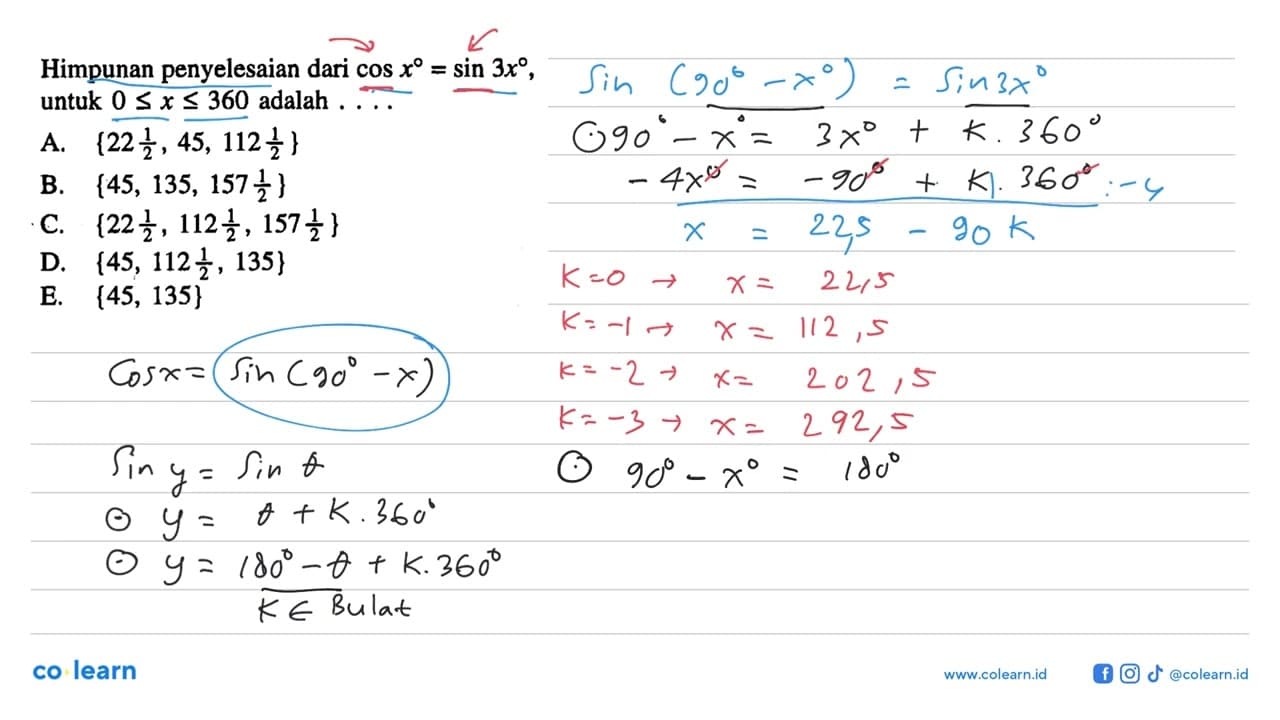 Himpunan penyelesaian dari cos x° = sin 3x°,
untuk 0 ≤ x ≤ 360 adalah . . . .
A. {22 1/2, 45, 112 1/2}
B. {45, 135, 157 1/2}
C. {22 1/2, 112 1/2, 157 1/2}
D. {45, 112 1/2, 135}
E. {45, 135}
Cos x = Sin (90° - x)
Sin y = Sin θ
⊙ y = θ + K. 360°
⊙ y = 180° - θ + K. 360°
K ∈ Bulat
Sin (90° - x°) = Sin 3x°
⊙ 90° - x° = 3x° + K. 360°
- 4x° = - 90° + K. 360° : -4
x = 22,5 - 90 K
K = 0 → x = 22,5
K = -1 → x = 112,5
K = -2 → x = 202,5
K = -3 → x = 292,5
⊙ 90° - x° = 180°
co learn
www.colearn.id
@colearn.id